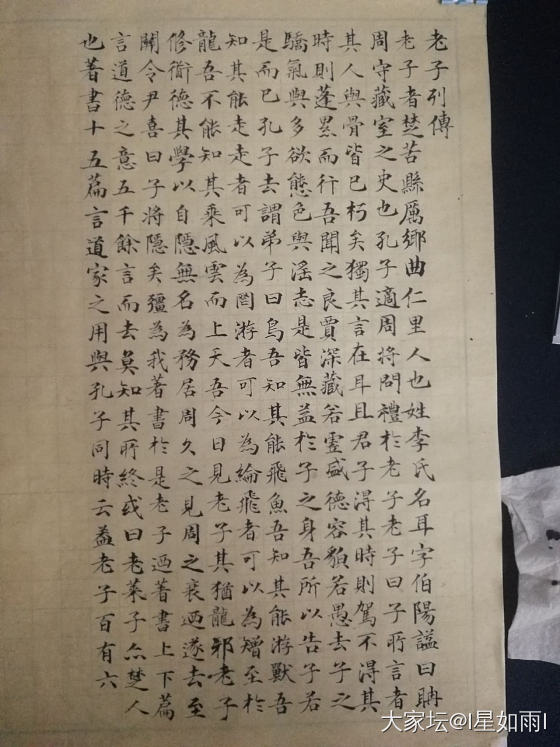 老子列傳
老子者楚苦縣厲鄉曲仁里人也姓李氏名耳字伯陽謚曰聃
周守藏室之史也孔子適周將問禮於老子老子曰子所言者
其人與骨皆已朽矣獨其言在耳且君子得其時則駕不得其
時則蓬累而行吾聞之良賈深藏若虛盛德容貌若愚去子之
驕氣與多欲態色與淫志是皆無益於子之身吾所以告子若
是而已孔子去謂弟子曰鳥吾知其能飛魚吾知其能游獸吾
知其能走走者可以為罔游者可以為綸飛者可以為矰至於
龍吾不能知其乘風雲而上天吾今日見老子其猶龍邪老子
修衜德其學以自隱無名為務居周久之見周之衰迺遂去至
關令尹喜曰子將隱矣彊為我著書於是老子迺著書上下篇
言道德之意五千餘言而去莫知其所終或曰老萊子亦楚人
也著書十五篇言道家之用與孔子同時云蓋老子百有六
大家坛@I星如雨I